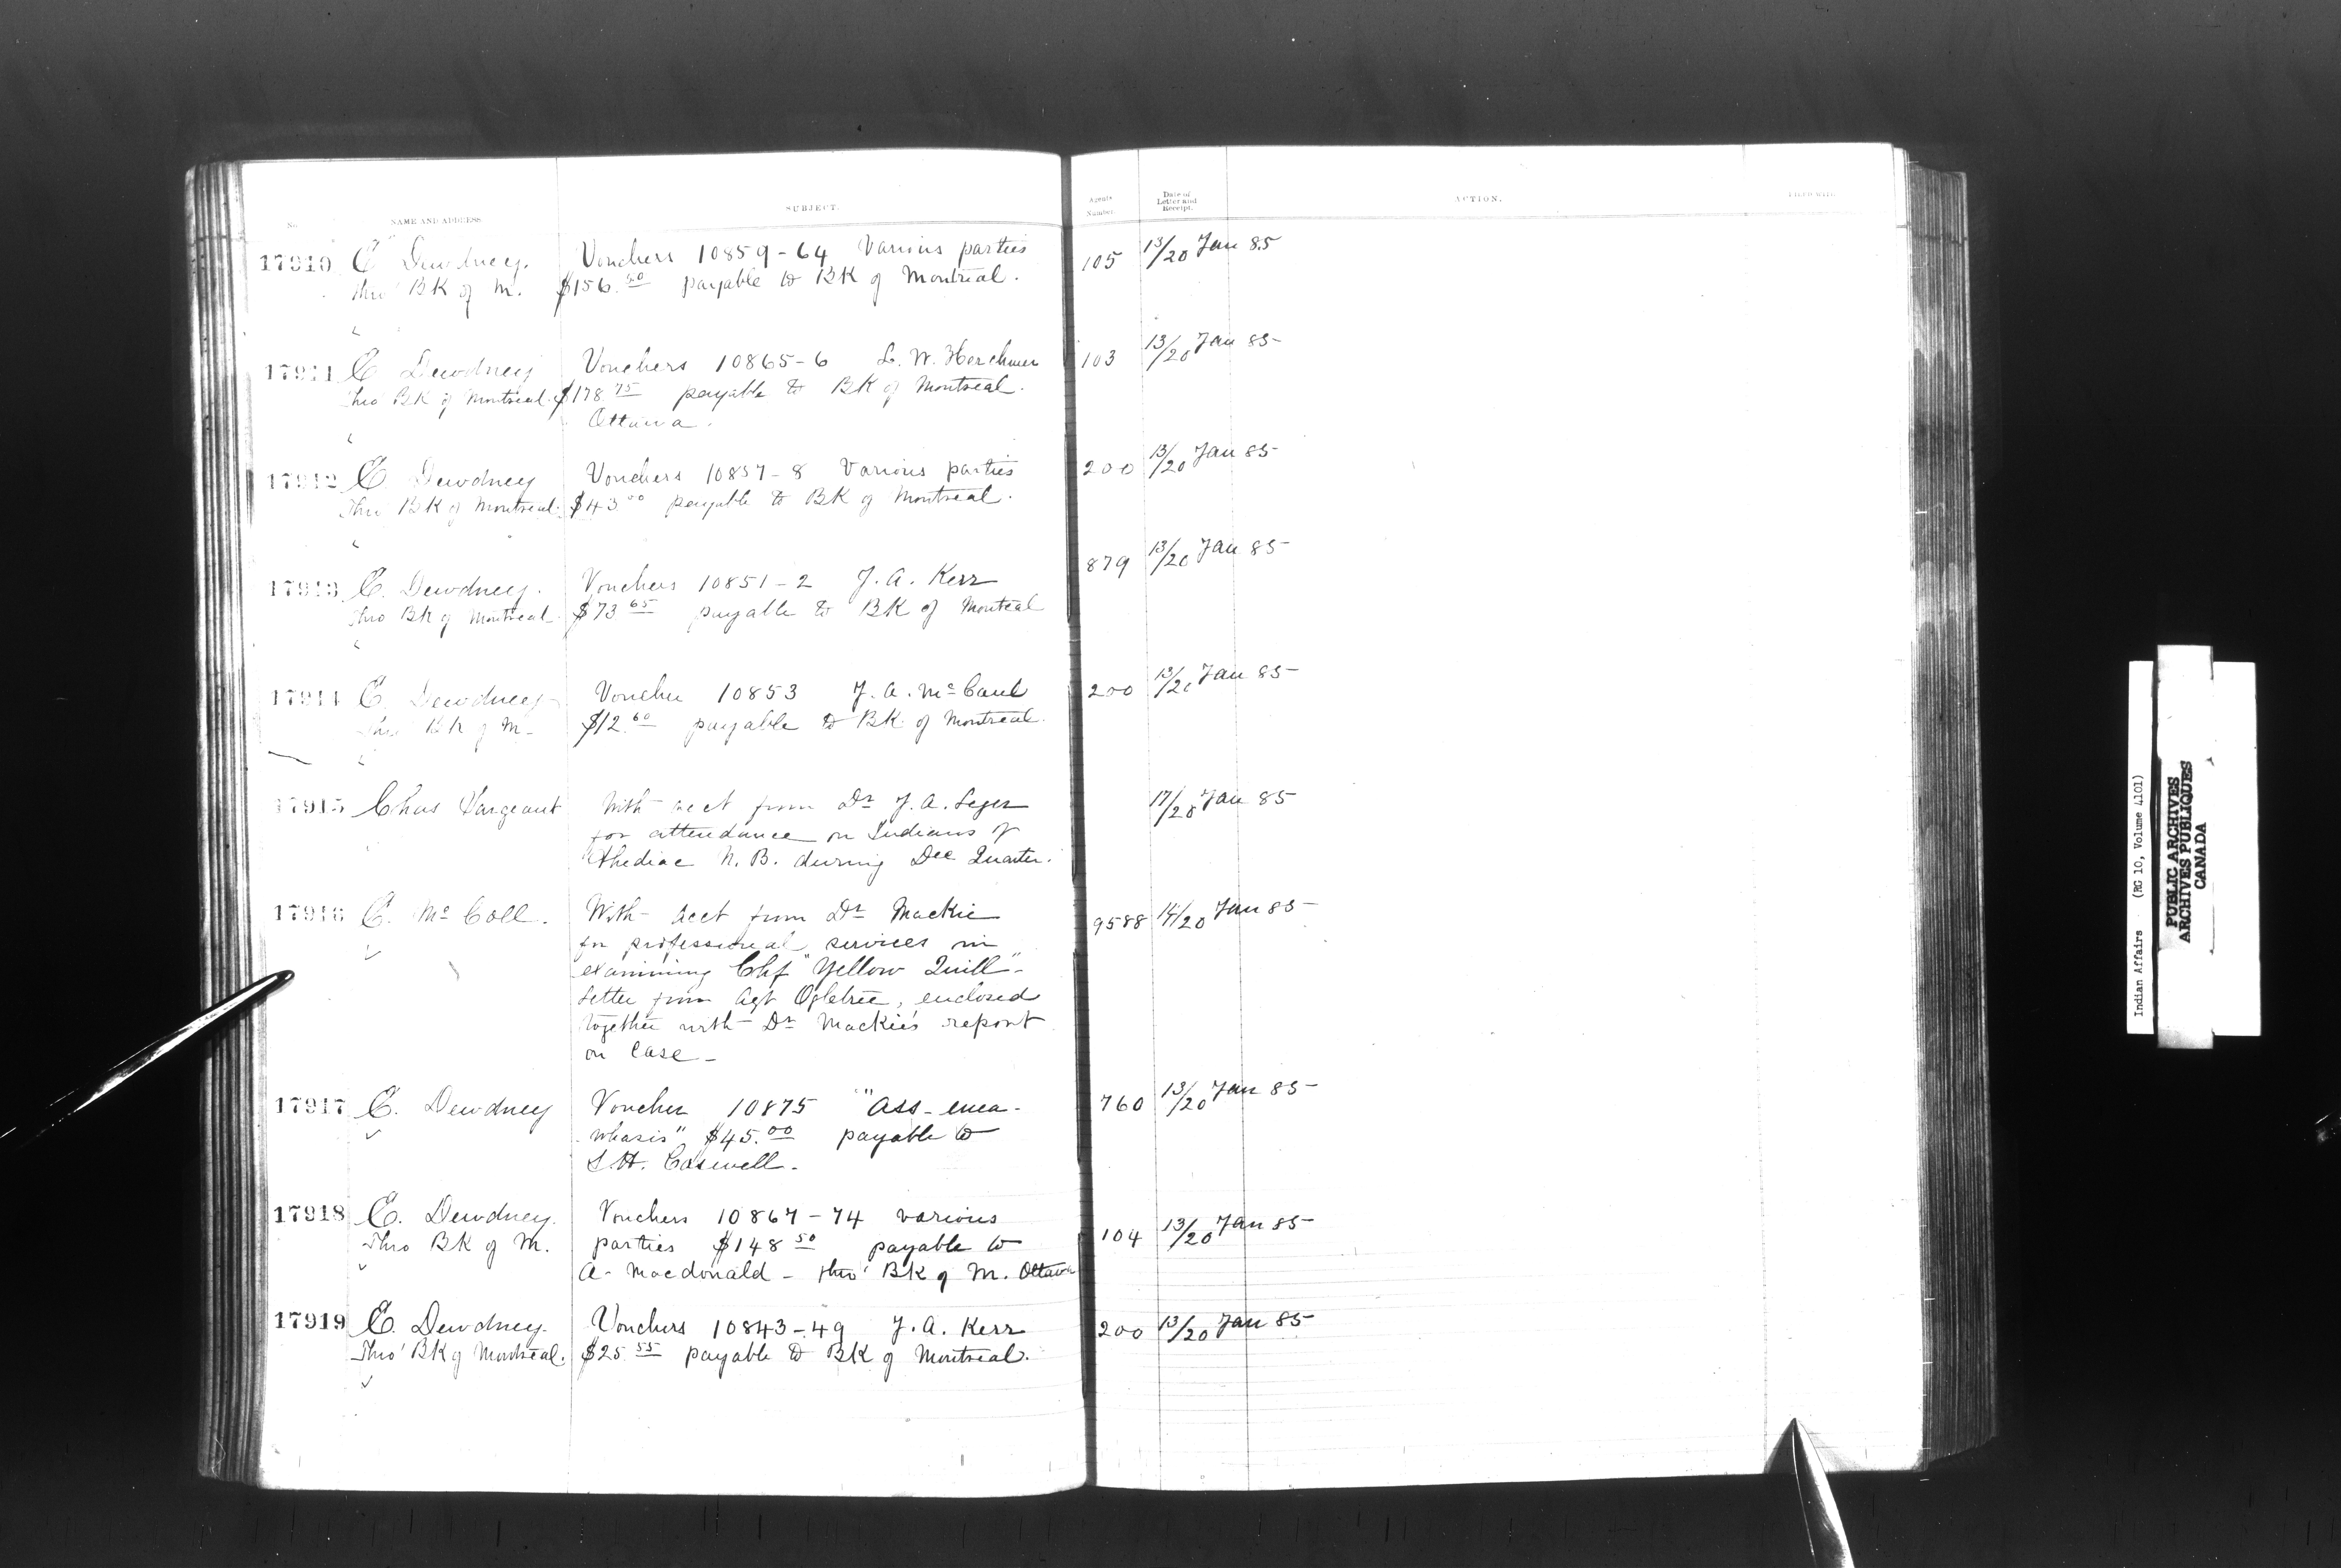 No. NAME AND ADDRESS. SUBJECT. Agents Number. Date of Letter and Receipt. ACTION. FILED WITH
17910 E Dewdney. Vouchers 10859-64 Various parties 105 13/20 Jan 85
Thro' BK of M. $156.50 payable to BK of Montreal.
17911 E Dewdney Vouchers 10865-6 L. W. Herchmer 103 13/20 Jan 85
Thro BK of Montreal. $178.75 payable to BK of Montreal.
Ottawa.
17912 E. Dewdney Vouchers 10857-8 Various parties 200 13/20 Jan 85
Thro BK of Montreal. $43.00 payable to BK of Montreal.
17913 E. Dewdney. Vouchers 10851-2 J. A. Kerr 879 13/20 Jan 85
Thro BK of Montreal $73.65 payable to BK of Montreal
17914 E. Dewdney Voucher 10853 J. A. McCaul 200 13/20 Jan 85
Thro BK of M- $12.60 payable to BK of Montreal.
17915 Chas Sargeant With acct from Dr J. A. Leger 17/20 Jan 85
for attendance on Indians of
Shediac N. B. during Dec Quarter.
17916 E. McColl. With acct from Dr Mackie 9588 14/20 Jan 85
for professional services in
examining Chf "Yellow Quill"-
Letter from Agt Ogletree, enclosed
together with Dr Mackie's report
on case-
17917 E. Dewdney Voucher 10875 "Ass-enea- 760 13/20 Jan 85
whasis" $45.00 payable to
S. H. Caswell.
17918 E. Dewdney. Vouchers 10867-74 various 104 13/20 Jan 85
Thro BK of M. parties $148.50 payable to
A. Macdonald - thro' BK of M. Ottawa
17919 E. Dewdney. Vouchers 10843-49 J. A. Kerr 200 13/20 Jan 85
Thro' BK of Montreal. $25.55 payable to BK of Montreal.
Indian Affairs (RG 10, Volume 4101)
PUBLIC ARCHIVES
ARCHIVES PUBLIQUES
CANADA